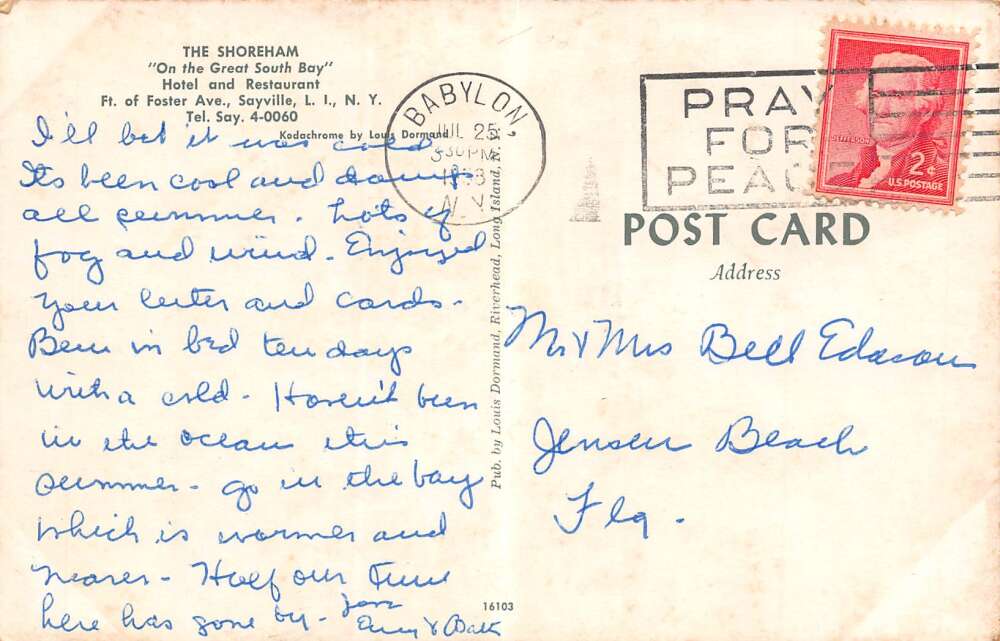 THE SHOREHAM
"On the Great South Bay"
Hotel and Restaurant
Ft. of Foster Ave., Sayville, L. I., N. Y.
Tel. Say. 4-0060
Kodachrome by Louis Dormand
I'll bet it was cold
Its been cool and damp
all summer. Lots of
fog and wind. Enjoyed
your letter and cards.
Been in bed ten days
with a cold. Haven't been
in the ocean this
summer - go in the bay
which is warmer and
nearer - Half our time
here has gone by.
Pub. by Louis Dormand, Riverhead, Long Island, N. Y.
16103
BABYLON,
JUL 25
N.Y.
PRAY
FOR
PEACE
JEFFERSON
2¢
U.S. POSTAGE
POST CARD
Address
Mr & Mrs Bell
Jensen Beach
Fla.